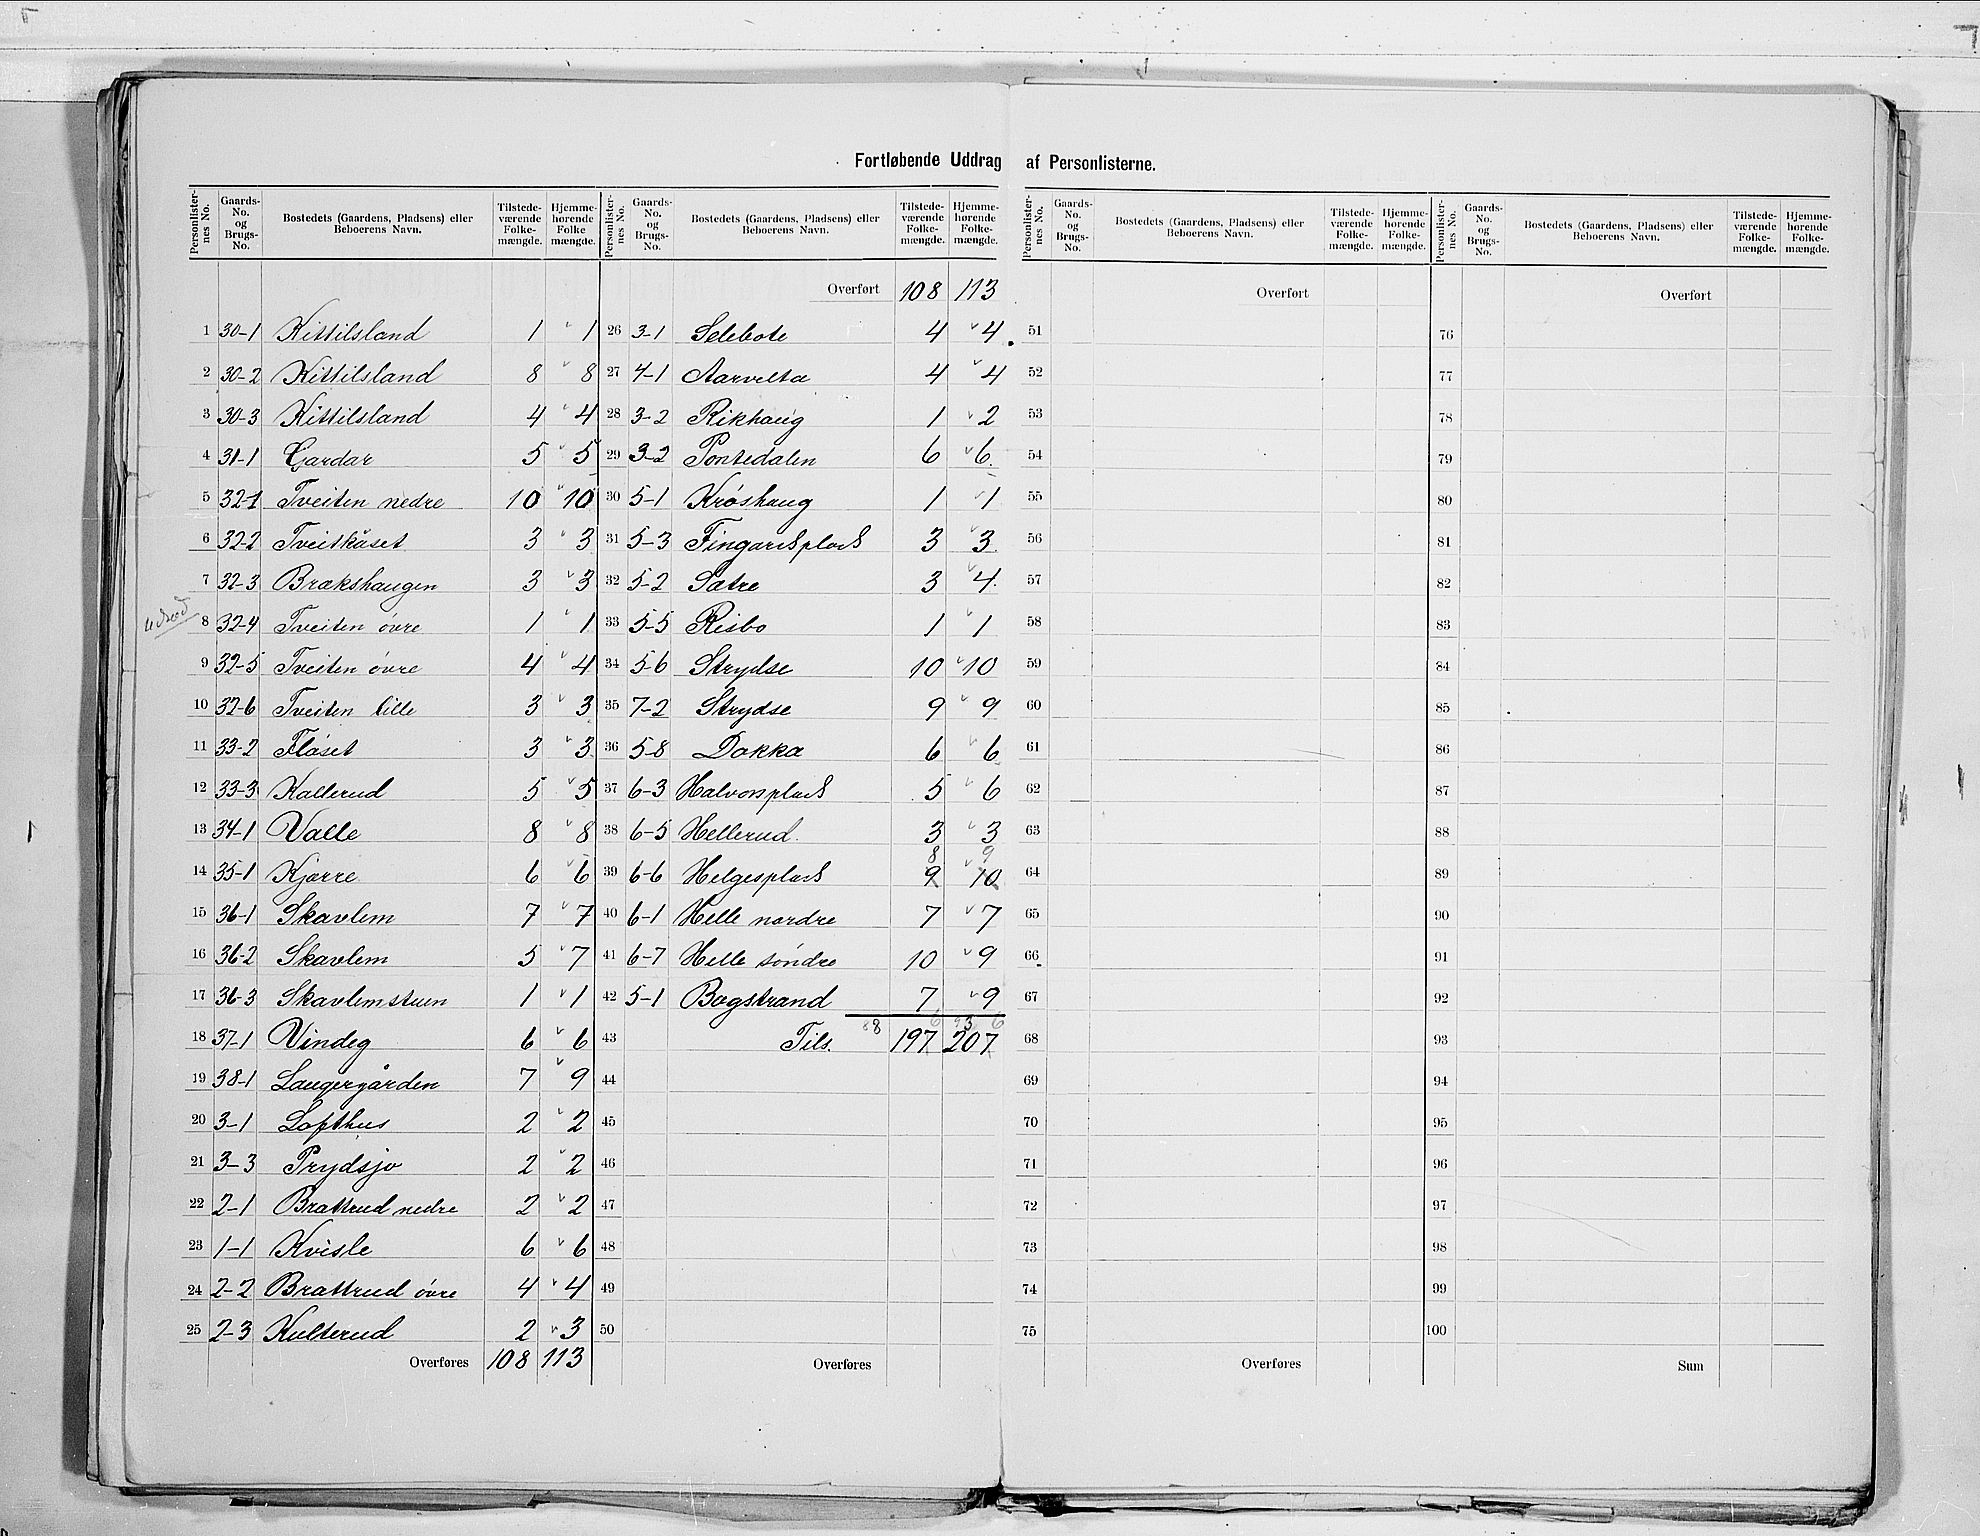 Fortløbende Uddrag af Personlisterne.
Personlister-nes No. | Gaards-No. og Brugs-No. | Bostedets (Gaardens, Pladsens) eller Beboerens Navn. | Tilstede-værende Folke-mængde. | Hjemme-hørende Folke mængde.
1 30-1 Kittilsland 1 1
2 30-2 Kittilsland 8 8
3 30-3 Kittilsland 4 4
4 31-1 Gardar 5 5
5 32-1 Tveiten nedre 10 10
6 32-2 Tveitkåset 3 3
7 32-3 Brækshaugen 3 3
8 32-4 Tveiten övre 1 1
9 32-5 Tveiten övre 4 4
10 32-6 Tveiten lille 3 3
11 33-2 Flåset 3 3
12 33-3 Kallerud 5 5
13 34-1 Valle 8 8
14 35-1 Kjørre 6 6
15 36-1 Skavlem 7 7
16 36-2 Skavlem 5 7
17 36-3 Skavlemstuen 1 1
18 37-1 Vindeg 6 6
19 38-1 Laugergården 7 9
20 3-1 Lofthus 2 2
21 3-3 Prydsjo 2 2
22 2-1 Brattrud nedre 2 2
23 1-1 Kvisle 6 6
24 2-2 Brattrud övre 4 4
25 2-3 Kulterud 2 3
Overføres 108 113
Personlister-nes No. | Gaards-No. og Brugs-No. | Bostedets (Gaardens, Pladsens) eller Beboerens Navn. | Tilstede-værende Folke-mængde. | Hjemme-hørende Folke-mængde.
Overført 108 113
26 3-1 Selebote 4 4
27 4-1 Aarvelta 4 4
28 3-2 Rikhaug 1 2
29 3-2 Pontedalen 6 6
30 5-1 Kröshaug 1 1
31 5-3 Fingardsplads 3 3
32 5-2 Satre 3 4
33 5-5 Risbo 1 1
34 5-6 Strydse 10 10
35 7-2 Strydse 9 9
36 5-8 Dokka 6 6
37 6-3 Halvorsplads 5 6
38 6-5 Hellerud 3 3
8 9
39 6-6 Helgesplads 9 10
40 6-1 Helle nordre 7 7
41 6-7 Helle söndre 10 9
42 5-1 Bogstrand 7 9
43 Tils. 197 207
44
45
46
47
48
49
50
Overføres
Personlister-nes No. | Gaards-No. og Brugs-No. | Bostedets (Gaardens, Pladsens) eller Beboerens Navn. | Tilstede-værende Folke-mængde. | Hjemme-hørende Folke-mængde.
Overført
51
52
53
54
55
56
57
58
59
60
61
62
63
64
65
66
67
68
69
70
71
72
73
74
75
Overføres
Personlister-nes No. | Gaards-No. og Brugs-No. | Bostedets (Gaardens, Pladsens) eller Beboerens Navn. | Tilstede-værende Folke-mængde. | Hjemme-hørende Folke-mængde.
Overført
76
77
78
79
80
81
82
83
84
85
86
87
88
89
90
91
92
93
94
95
96
97
98
99
100
Sum